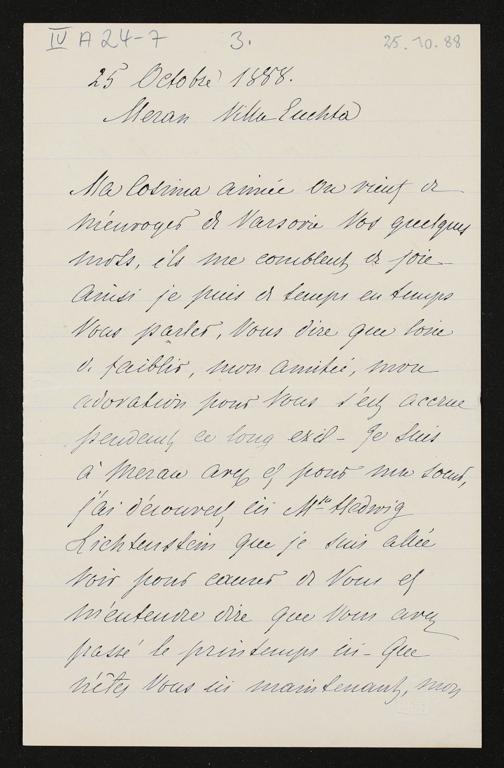 IV A 24-7 3. 25.10.88
25 Octobre 1888.
Meran Villa Euchta
Ma Cosima aimée on vient de
m'envoyer de Varsovie Vos quelques
mots, ils me comblent de joie
Ainsi je puis de temps en temps
Vous parler, Vous dire que loin
de faiblir, mon amitié, mon
adoration pour Vous s'est accrue
pendant ce long exil - Je suis
à Meran avec et pour ma sœur,
j'ai découvert ici Hedwig
Lichtenstein que je suis allée
voir pour causer de Vous et
m'entendre dire que Vous avez
passé le printemps ici - Que
n'êtes Vous ici maintenant, mon